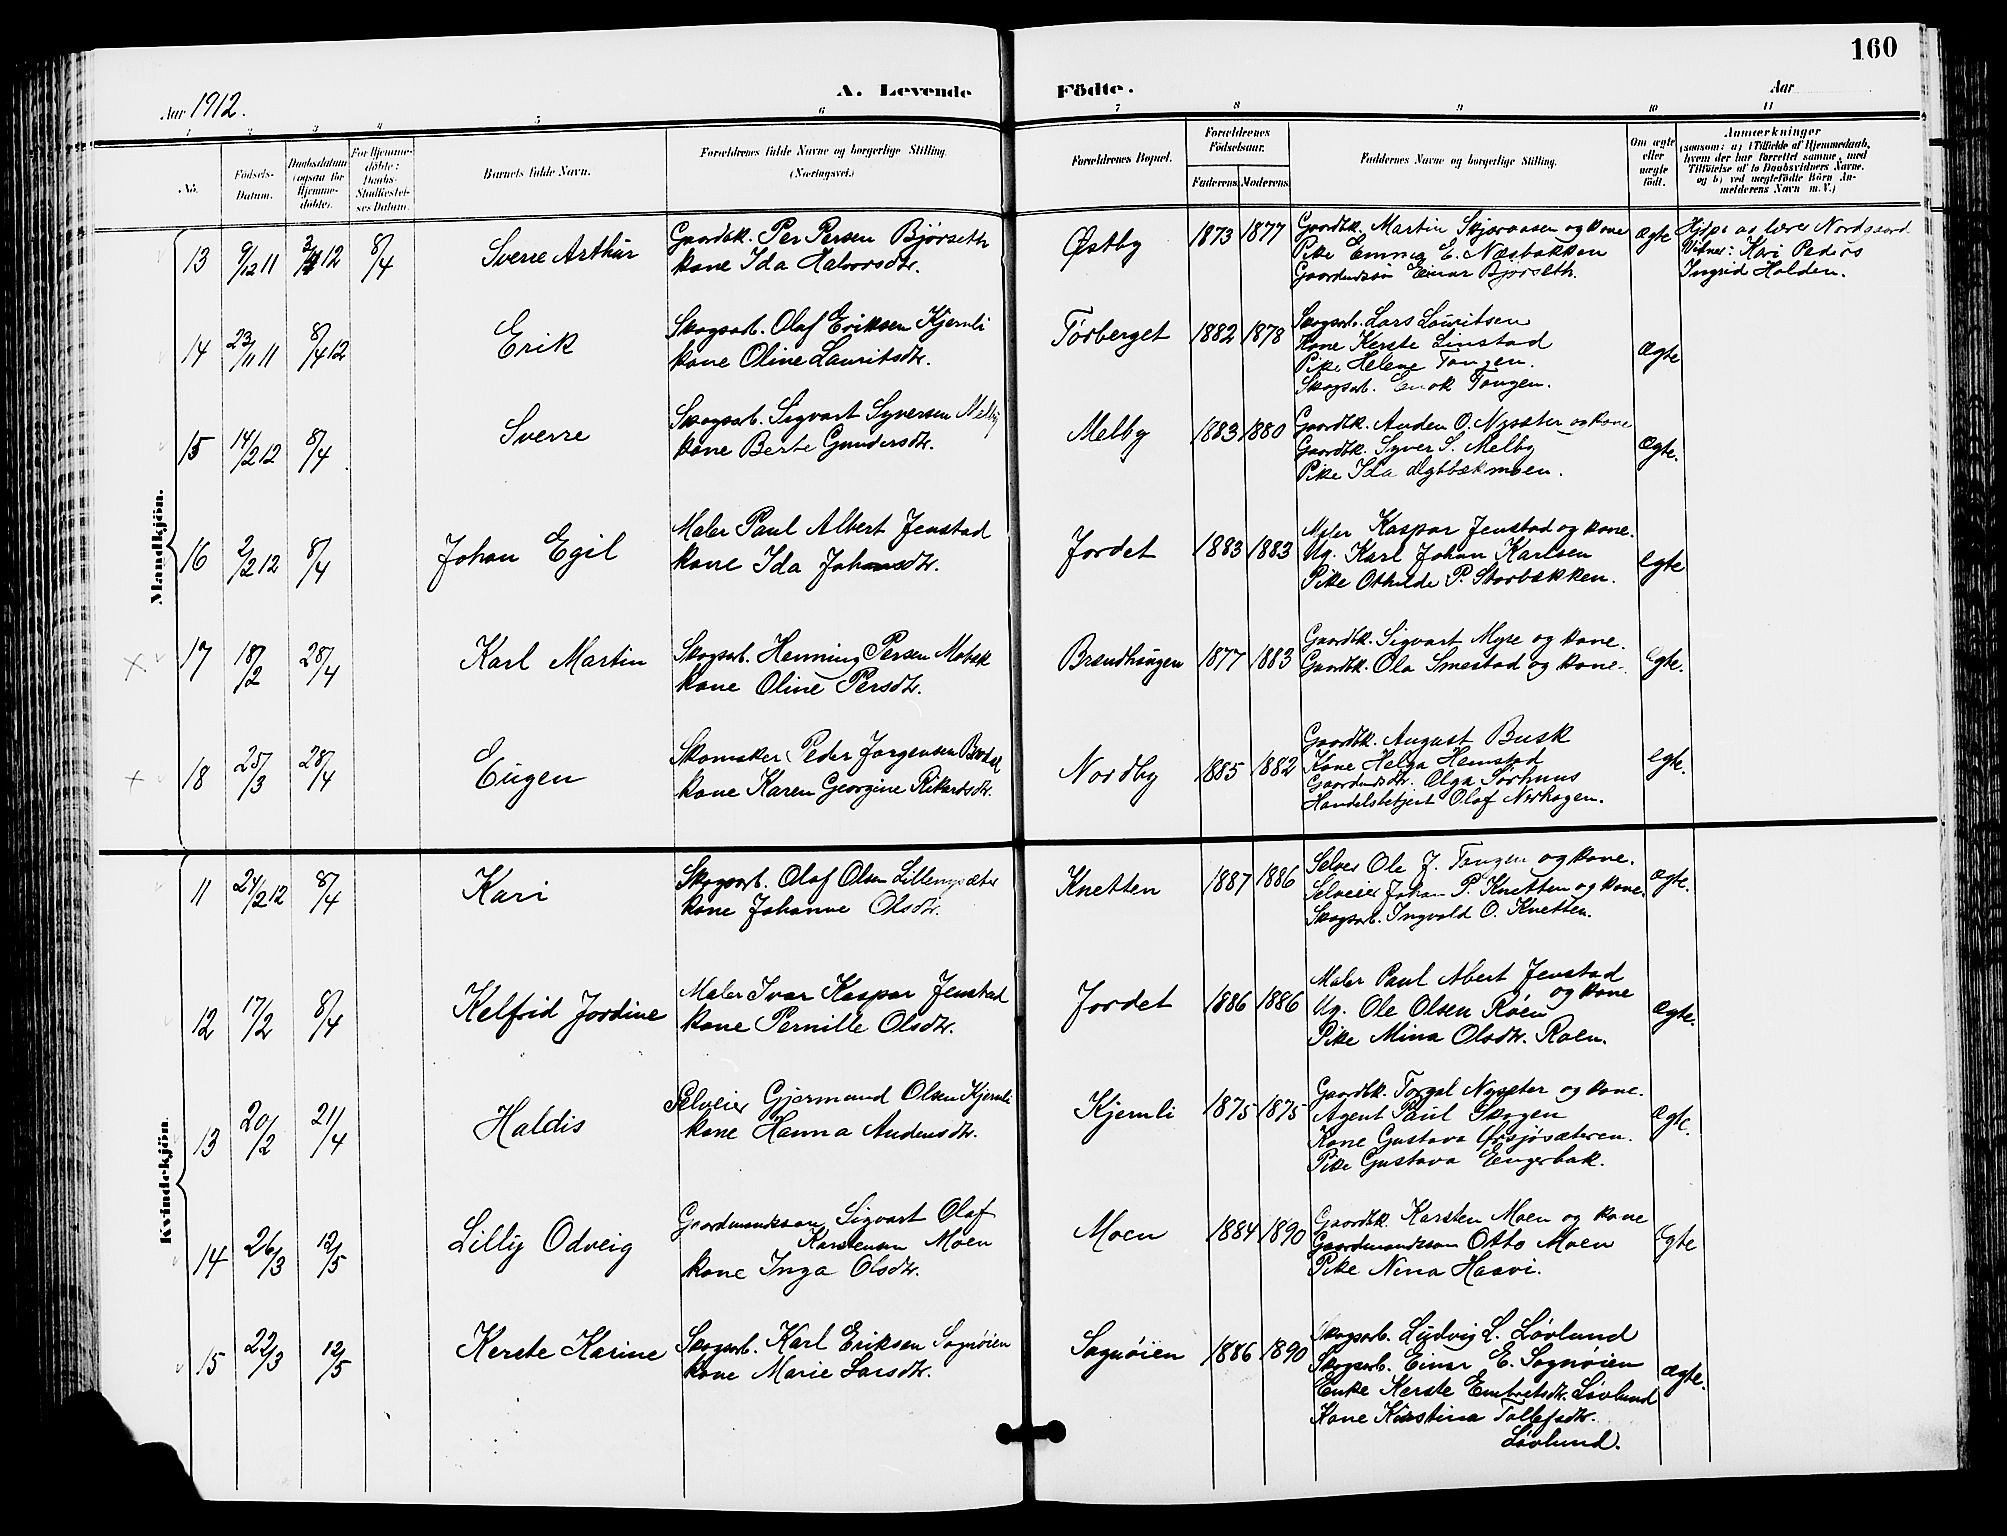 160
A. Levende Födte.
Aar 1912.
Aar
1 2 3 4 5 6 7 8 9 10 11
No.
Födsels-Datum.
Daabsdatum (ogsaa for Hjemme-döbte).
For Hjemme-döbte: Daabs-Stadfæstelses Datum.
Barnets fulde Navn.
Forældrenes fulde Navne og borgerlige Stilling. (Næringsvei.)
Forældrenes Bopæl.
Forældrenes Födselsaar.
Faderens. Moderens.
Faddernes Navne og borgerlige Stilling.
Om ægte eller uægte født.
Anmærkninger
(saasom: a) i Tilfælde af Hjemmedaab, hvem der har forrettet samme, med Tilföielse af to Daabsvidners Navne, og b) ved uægtefödte Börn Anmelderens Navn m. V.)
Mandkjön.
13 9/12 11 12 8/4 Sverre Arthur
Gaardbk. Per Persen Bjørseth
kone Ida Halvorsdtr.
Østby 1873 1877
Gaardbk. Martin Skjæraasen og kone
Pike Emma E. Næsbakken
Gaardmandssøn Einar Bjørseth.
ægte
Hjdpt av lærer Nordgaard.
Vitner: Kari Peders
Ingrid Holden.
14 23/11 11 8/4 12 Erik
Skogsarb. Olaf Eriksen Kjernli
kone Oline Lauritsdtr.
Törberget 1882 1878
Skogsarb. Lars Lauritsen
Kone Kerste Linstad
Pike Helene Tangen.
Skogsarb. Enok Tangen.
ægte
15 14/2 12 8/4 Sverre
Skogsarb. Sigvart Syversen Melby
kone Berte Gundersdtr.
Melby 1883 1880
Gaardbk. Anden O. Nysæter og kone
Gaardbk. Syver S. Melby
Pike Ida Nybækmoen.
ægte.
16 2/2 12 8/4 Johan Egil
Maler Paul Albert Jenstad
kone Ida Johansdtr.
Jordet 1883 1883
Maler Kaspar Jenstad og kone.
Ug. Karl Johan Karlsen
Pike Othilde P. Storbækken.
egte
17 18/2 28/4 Karl Martin
Skogsarb. Henning Persen Mobæk
kone Oline Persdtr.
Brændhaugen 1877 1883
Gaardbk. Sigvart Myre og kone.
Gaardbk. Ola Smestad og kone.
Egte.
18 25/3 28/4 Eugen
Skomaker Peder Jørgensen
kone Karen Georgine Rikardsdtr.
Nordby 1885 1882
Gaardbk. August Busk
Kone Helga Hemstad
Gaardmdsdtr. Olga Sørhuus
Handelsbetjent Olaf Nerhagen.
egte.
Kvindekjön.
11 24/2 12 8/4 Kari
Skogsarb. Olaf Olsen Lillenysæter
kone Johanne Olsdtr.
Knetten 1887 1886
Selveier Ole J. Tangen og kone.
Selveier Johan P. Knetten og kone.
Skogsarb. Ingvald O. Knetten.
ægte.
12 17/2 8/4 Kelfrid Jordine
Maler Ivar Kaspar Jenstad
kone Pernille Olsdtr.
Jordet 1886 1886
Maler Paul Albert Jenstad
og kone
Ug. Ole Olsen Røen
Pike Mina Olsdtr. Roen.
ægte.
13 20/2 21/4 Haldis
Selveier Gjermund Olsen Kjernli
kone Hanna Andersdtr.
Kjernli 1875 1875
Gaardbk. Torgal Nysæter og kone.
Agent Paul Skogen
Kone Gustava Ørsjøsæteren.
Pike Gustava Engerbak.
ægte.
14 26/3 12/5 Lilly Odveig
Gaardmandssøn Sigvart Olaf
Karstensen Moen
kone Inga Olsdtr.
Moen 1884 1890
Gaardbk. Karsten Moen og kone
Gaardmandssøn Otto Moen
Pike Nina Haavi.
Egte
15 22/3 12/5 Kerste Karine
Skogsarb. Karl Eriksen Sognøien
kone Marie Larsdtr.
Sognøien 1886 1890
Skogsarb. Ludvig L. Løvlund
Skogsarb. Einar E. Sognøien
Enke Kerste Embretsdtr. Løvlund
Kone Kirstina Tollefsdtr.
Løvlund.
ægte.